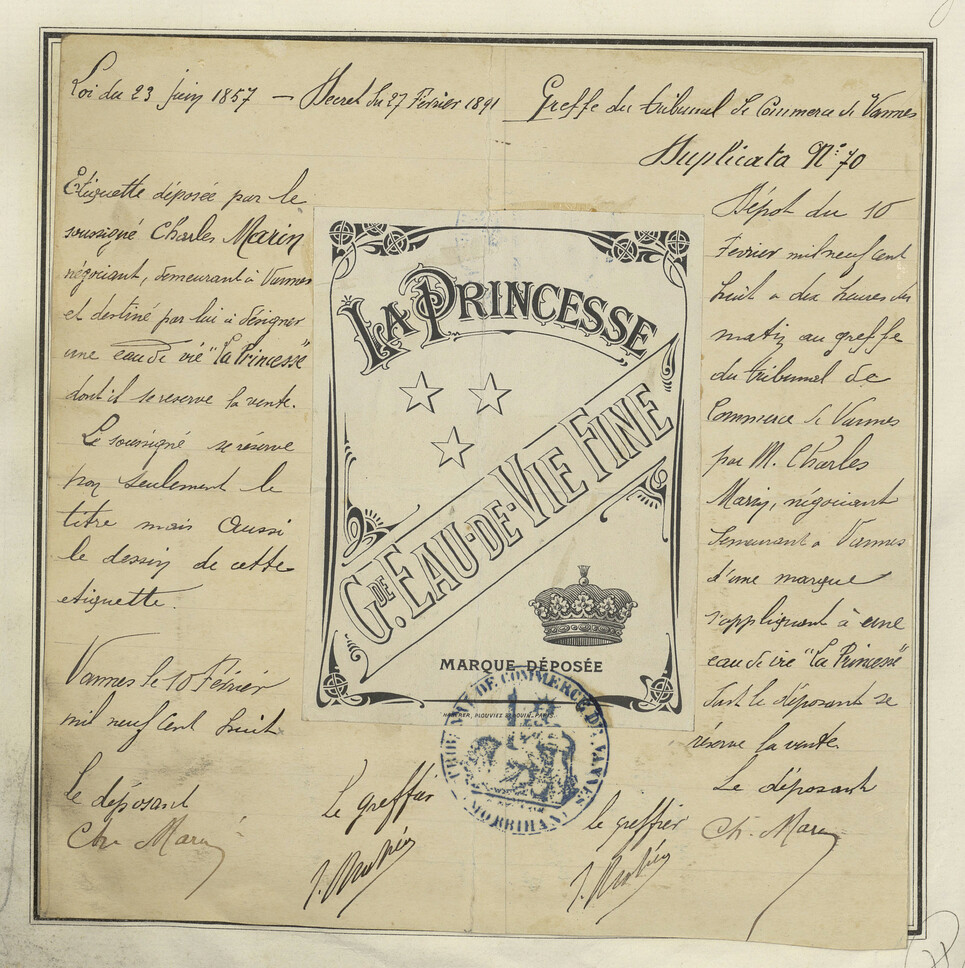 Loi du 23 juin 1857 — Décret du 27 Février 1891
Greffe du tribunal de Commerce de Vannes
Duplicata N° 70
Etiquette déposée par le
soussigné Charles Marin
négociant, demeurant à Vannes
et destiné par lui à désigner
une eau de vie "la Princesse"
dont il se reserve la vente.
Le soussigné se réserve
non seulement le
titre mais aussi
le dessin de cette
etiquette.
Vannes le 10 Février
mil neuf cent huit
le déposant
Ch. Marin
LA PRINCESSE
GDE. EAU-DE-VIE FINE
MARQUE DÉPOSÉE
TRIBUNAL DE COMMERCE DE VANNES
MORBIHAN
le greffier
le greffier
Dépôt du 10
Février mil neuf cent
huit a dix heures du
matin au greffe
du tribunal de
Commerce de Vannes
par M. Charles
Marin, négociant
demeurant a Vannes
d'une marque
s'appliquant à une
eau de vie "la Princesse"
dont le déposant se
réserve la vente.
Le déposant
Ch. Marin